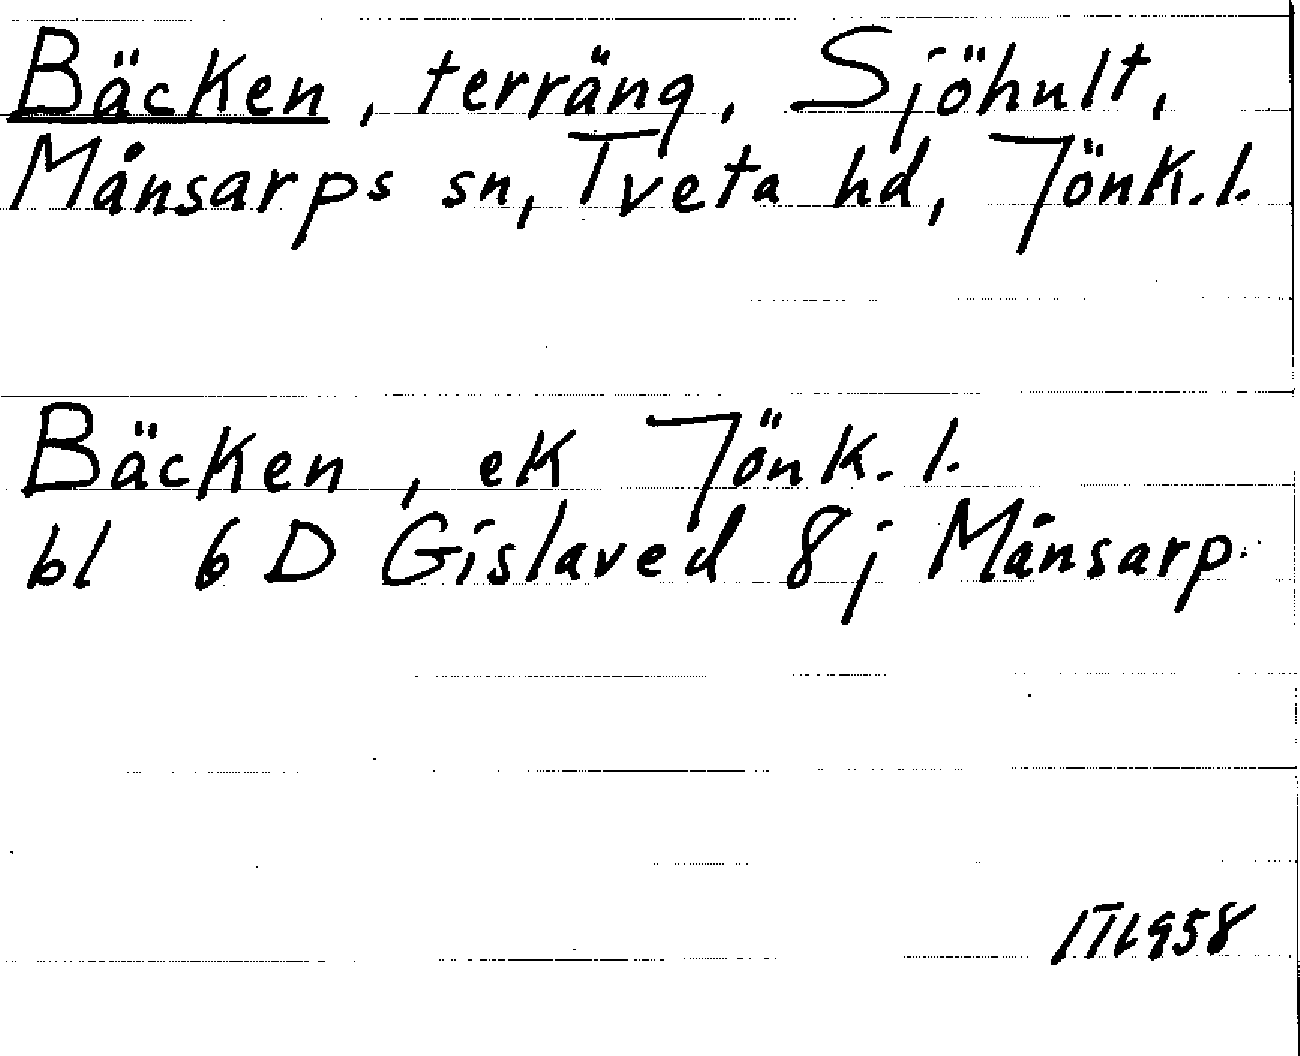 Bäcken, terräng, Sjöhult,
Månsarps sn, Tveta hd, Jönk.l.
Bäcken, ek Jönk.l.
bl 6D Gislaved 8j Månsarp